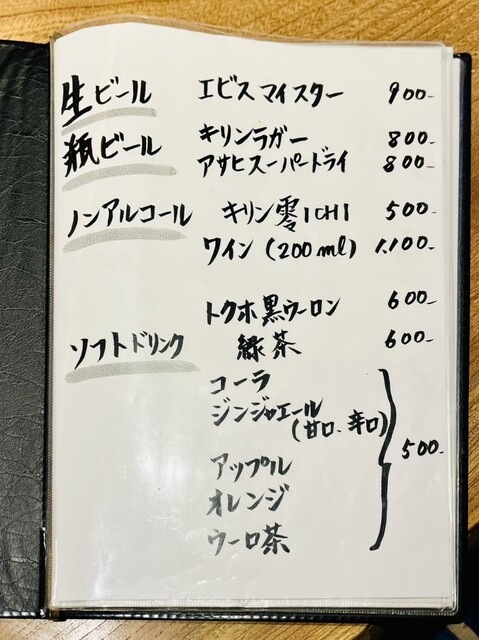 生ビール エビスマイスター 900-
瓶ビール キリンラガー 800-
アサヒスーパードライ 800-
ノンアルコール キリン零ICHI 500-
ワイン (200ml) 1,100-
トクホ黒ウーロン 600-
ソフトドリンク 緑茶 600-
コーラ
ジンジャエール
(甘口、辛口)
500-
アップル
オレンジ
ウーロ茶